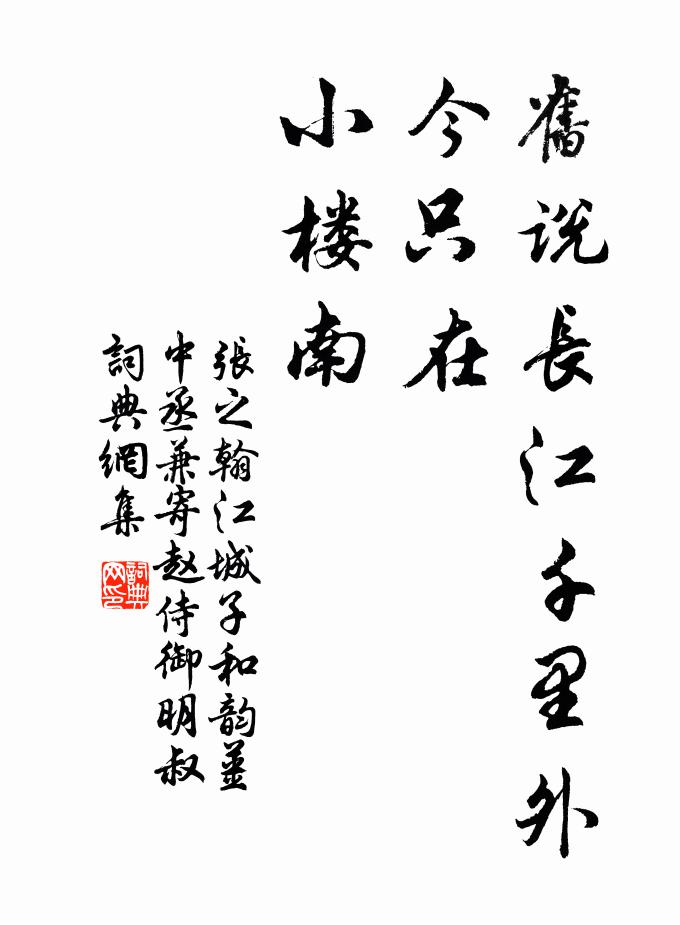 舊説長江千里外
今只在
小楼南
張之翰江城子和韵薑
中丞兼寄赵侍御明叔
詞典網集
詞典网印